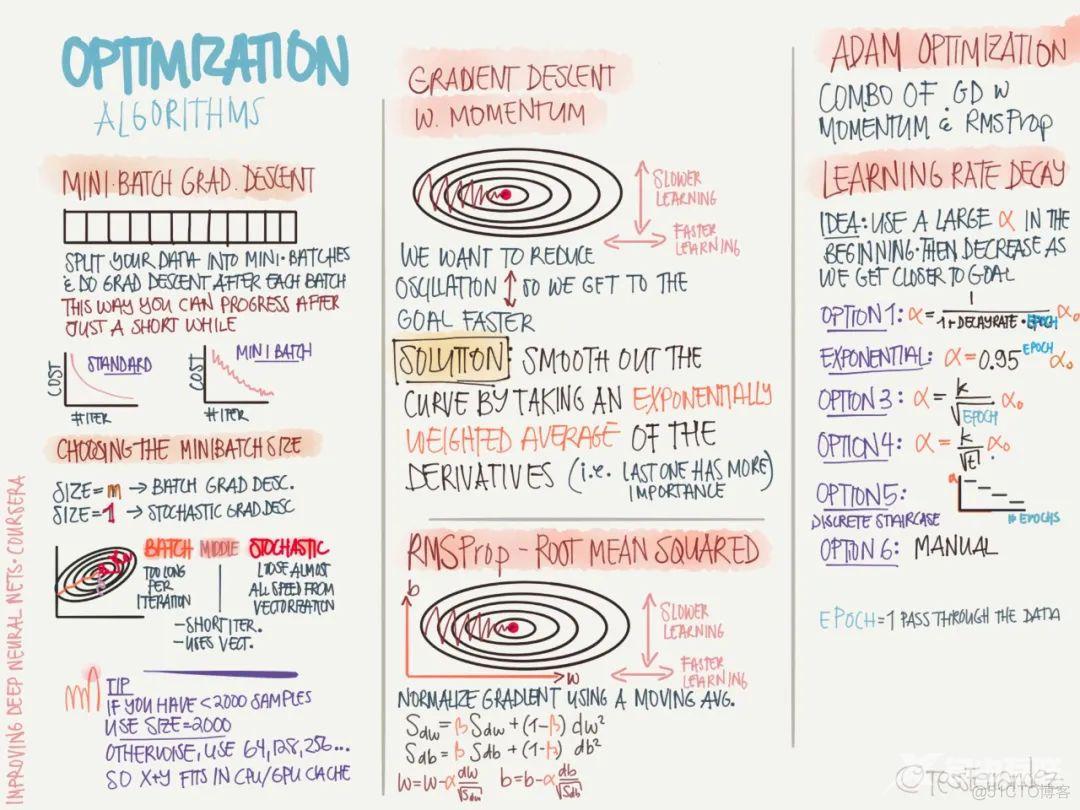 OPTIMIZATION
ALGORITHMS
MINI·BATCH GRAD. DESCENT
SPLIT YOUR DATA INTO MINI·BATCHES
& DO GRAD DESCENT AFTER EACH BATCH
THIS WAY YOU CAN PROGRESS AFTER
JUST A SHORT WHILE
COST
STANDARD
# ITER
COST
MINI BATCH
# ITER
CHOOSING THE MINIBATCH SIZE
SIZE = m → BATCH GRAD DESC.
SIZE = 1 → STOCHASTIC GRAD.DESC
BATCH MIDDLE STOCHASTIC
TOO LONG
PER
ITERATION
LOOSE ALMOST
ALL SPEED FROM
VECTORIZATION
-SHORT ITER.
-USES VECT.
TIP
IF YOU HAVE < 2000 SAMPLES
USE SIZE=2000
OTHERWISE, USE 64,128,256...
SO X+Y FITS IN CPU/GPU CACHE
IMPROVING DEEP NEURAL NETS · COURSERA
GRADIENT DESCENT
W. MOMENTUM
SLOWER
LEARNING
FASTER
LEARNING
WE WANT TO REDUCE
OSCILLATION ↕ SO WE GET TO THE
GOAL FASTER
SOLUTION: SMOOTH OUT THE
CURVE BY TAKING AN EXPONENTIALLY
WEIGHTED AVERAGE OF THE
DERIVATIVES (i.e. LAST ONE HAS MORE)
IMPORTANCE
RMSProp - ROOT MEAN SQUARED
b
w
SLOWER
LEARNING
FASTER
LEARNING
NORMALIZE GRADIENT USING A MOVING AVG.
Sdw = β Sdw + (1-β) dw²
Sdb = β Sdb + (1-β) db²
w = w - α dw/√Sdw b = b - α db/√Sdb
ADAM OPTIMIZATION
COMBO OF GD W
MOMENTUM & RMSProp
LEARNING RATE DECAY
IDEA: USE A LARGE α IN THE
BEGINNING·THEN DECREASE AS
WE GET CLOSER TO GOAL
OPTION 1: α = 1/(1+DECAYRATE·EPOCH) α₀
EXPONENTIAL: α = 0.95^EPOCH α₀
OPTION 3: α = k/√EPOCH α₀
OPTION 4: α = k/√t α₀
OPTION 5:
DISCRETE STAIRCASE
α
# EPOCHS
OPTION 6: MANUAL
EPOCH = 1 PASS THROUGH THE DATA
@51CTO博客